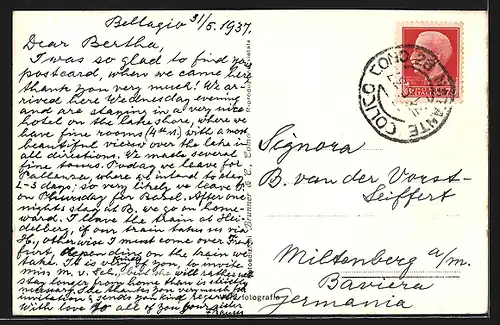 Bellagio 31/5. 1937.
Dear Bertha,
I was so glad to find your
postcard, when we came here
thank you very much! We ar-
rived here Wednesday evening
and are staying in a very nice
hotel on the lake shore, where we
have fine rooms (4th st.) with a most
beautiful view over the lake in
all directions. We made several
fine tours. Today we leave for
Pallanza, where we intend to stay
2-3 days; so very likely we leave
on Thursday for Basel. After one
night's stay at B. we go on home-
ward. I leave the train at Hei-
delberg, if our train takes us via
H., otherwise I must come over Frank-
furt, depending on the train we
take. It is very kind of you, to invite
miss M. v. Sch., but she will rather not
stay longer from home than is strictly
necessary. She thanks you very much for
invitation & sends you kind regards.
With love to all of you
Signora
B. van der Vorst-
Seiffert
Miltenberg a/m.
Baviera
Germania
COLICO
fotografia